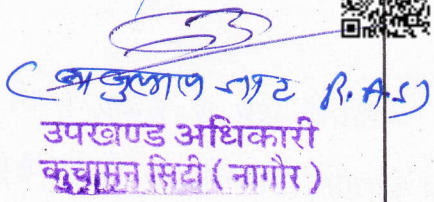 ( बाबुलाल जाट R.A.S)
उपखण्ड अधिकारी
कुचामन सिटी ( नागौर )